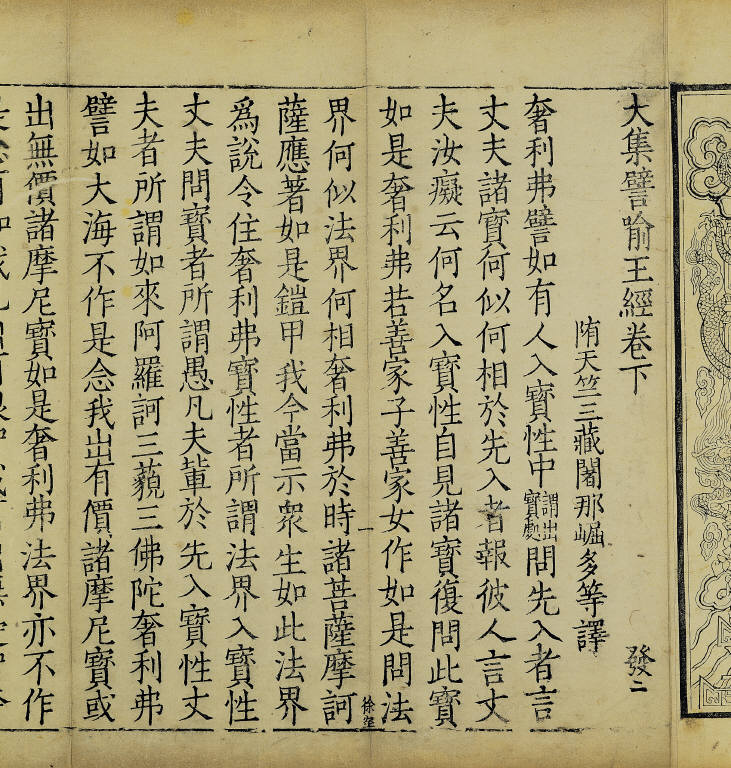 大集譬喻王經卷下 發二
隋天竺三藏闍那崛多等譯
奢利弗譬如有人入寶性中謂出寶處問先入者言
丈夫諸寶何似何相於先入者報彼人言丈
夫汝癡云何名入寶性自見諸寶復問此寶
如是奢利弗若善家子善家女作如是問法
界何似法界何相奢利弗於時諸菩薩摩訶
徐
薩應著如是鎧甲我今當示眾生如此法界
爲說令住奢利弗寶性者所謂法界入寶性
丈夫問寶者所謂愚凡夫輩於先入寶性丈
夫者所謂如來阿羅訶三藐三佛陀奢利弗
譬如大海不作是念我出有價諸摩尼寶或
出無價諸摩尼寶如是奢利弗法界亦不作